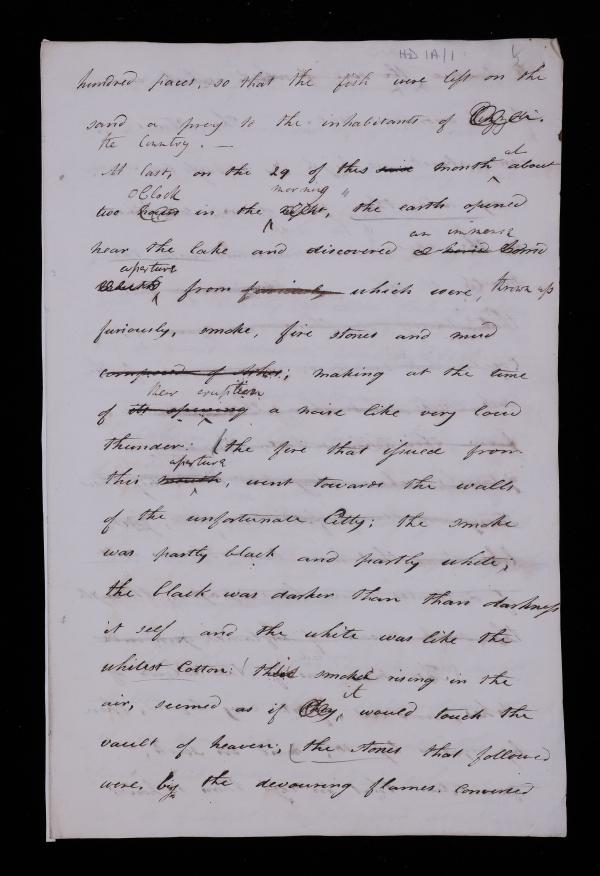 HD 1A/1
hundred paces, so that the fish were left on the
sand a prey to the inhabitants of
the Country. —
At last, on the 29 of this same month at about
two hours o'Clock in the night morning, the earth opened
near the lake and discovered a horid an immense
aperture from furiously which were, thrown up
furiously, smoke, fire stones and mud
composed of Ashes; making at the time
of its spewing their eruption a noise like very loud
thunder: (the fire that issued from
this mouth aperture, went towards the walls
of the unfortunate Citty; the smoke
was partly black and partly white;
the black was darker than than darkness
it self, and the white was like the
whitest Cotton: this smoke rising in the
air, seemed as if they it would touch the
vault of heaven; (the stones that followed
were, by the devouring flames. Converted